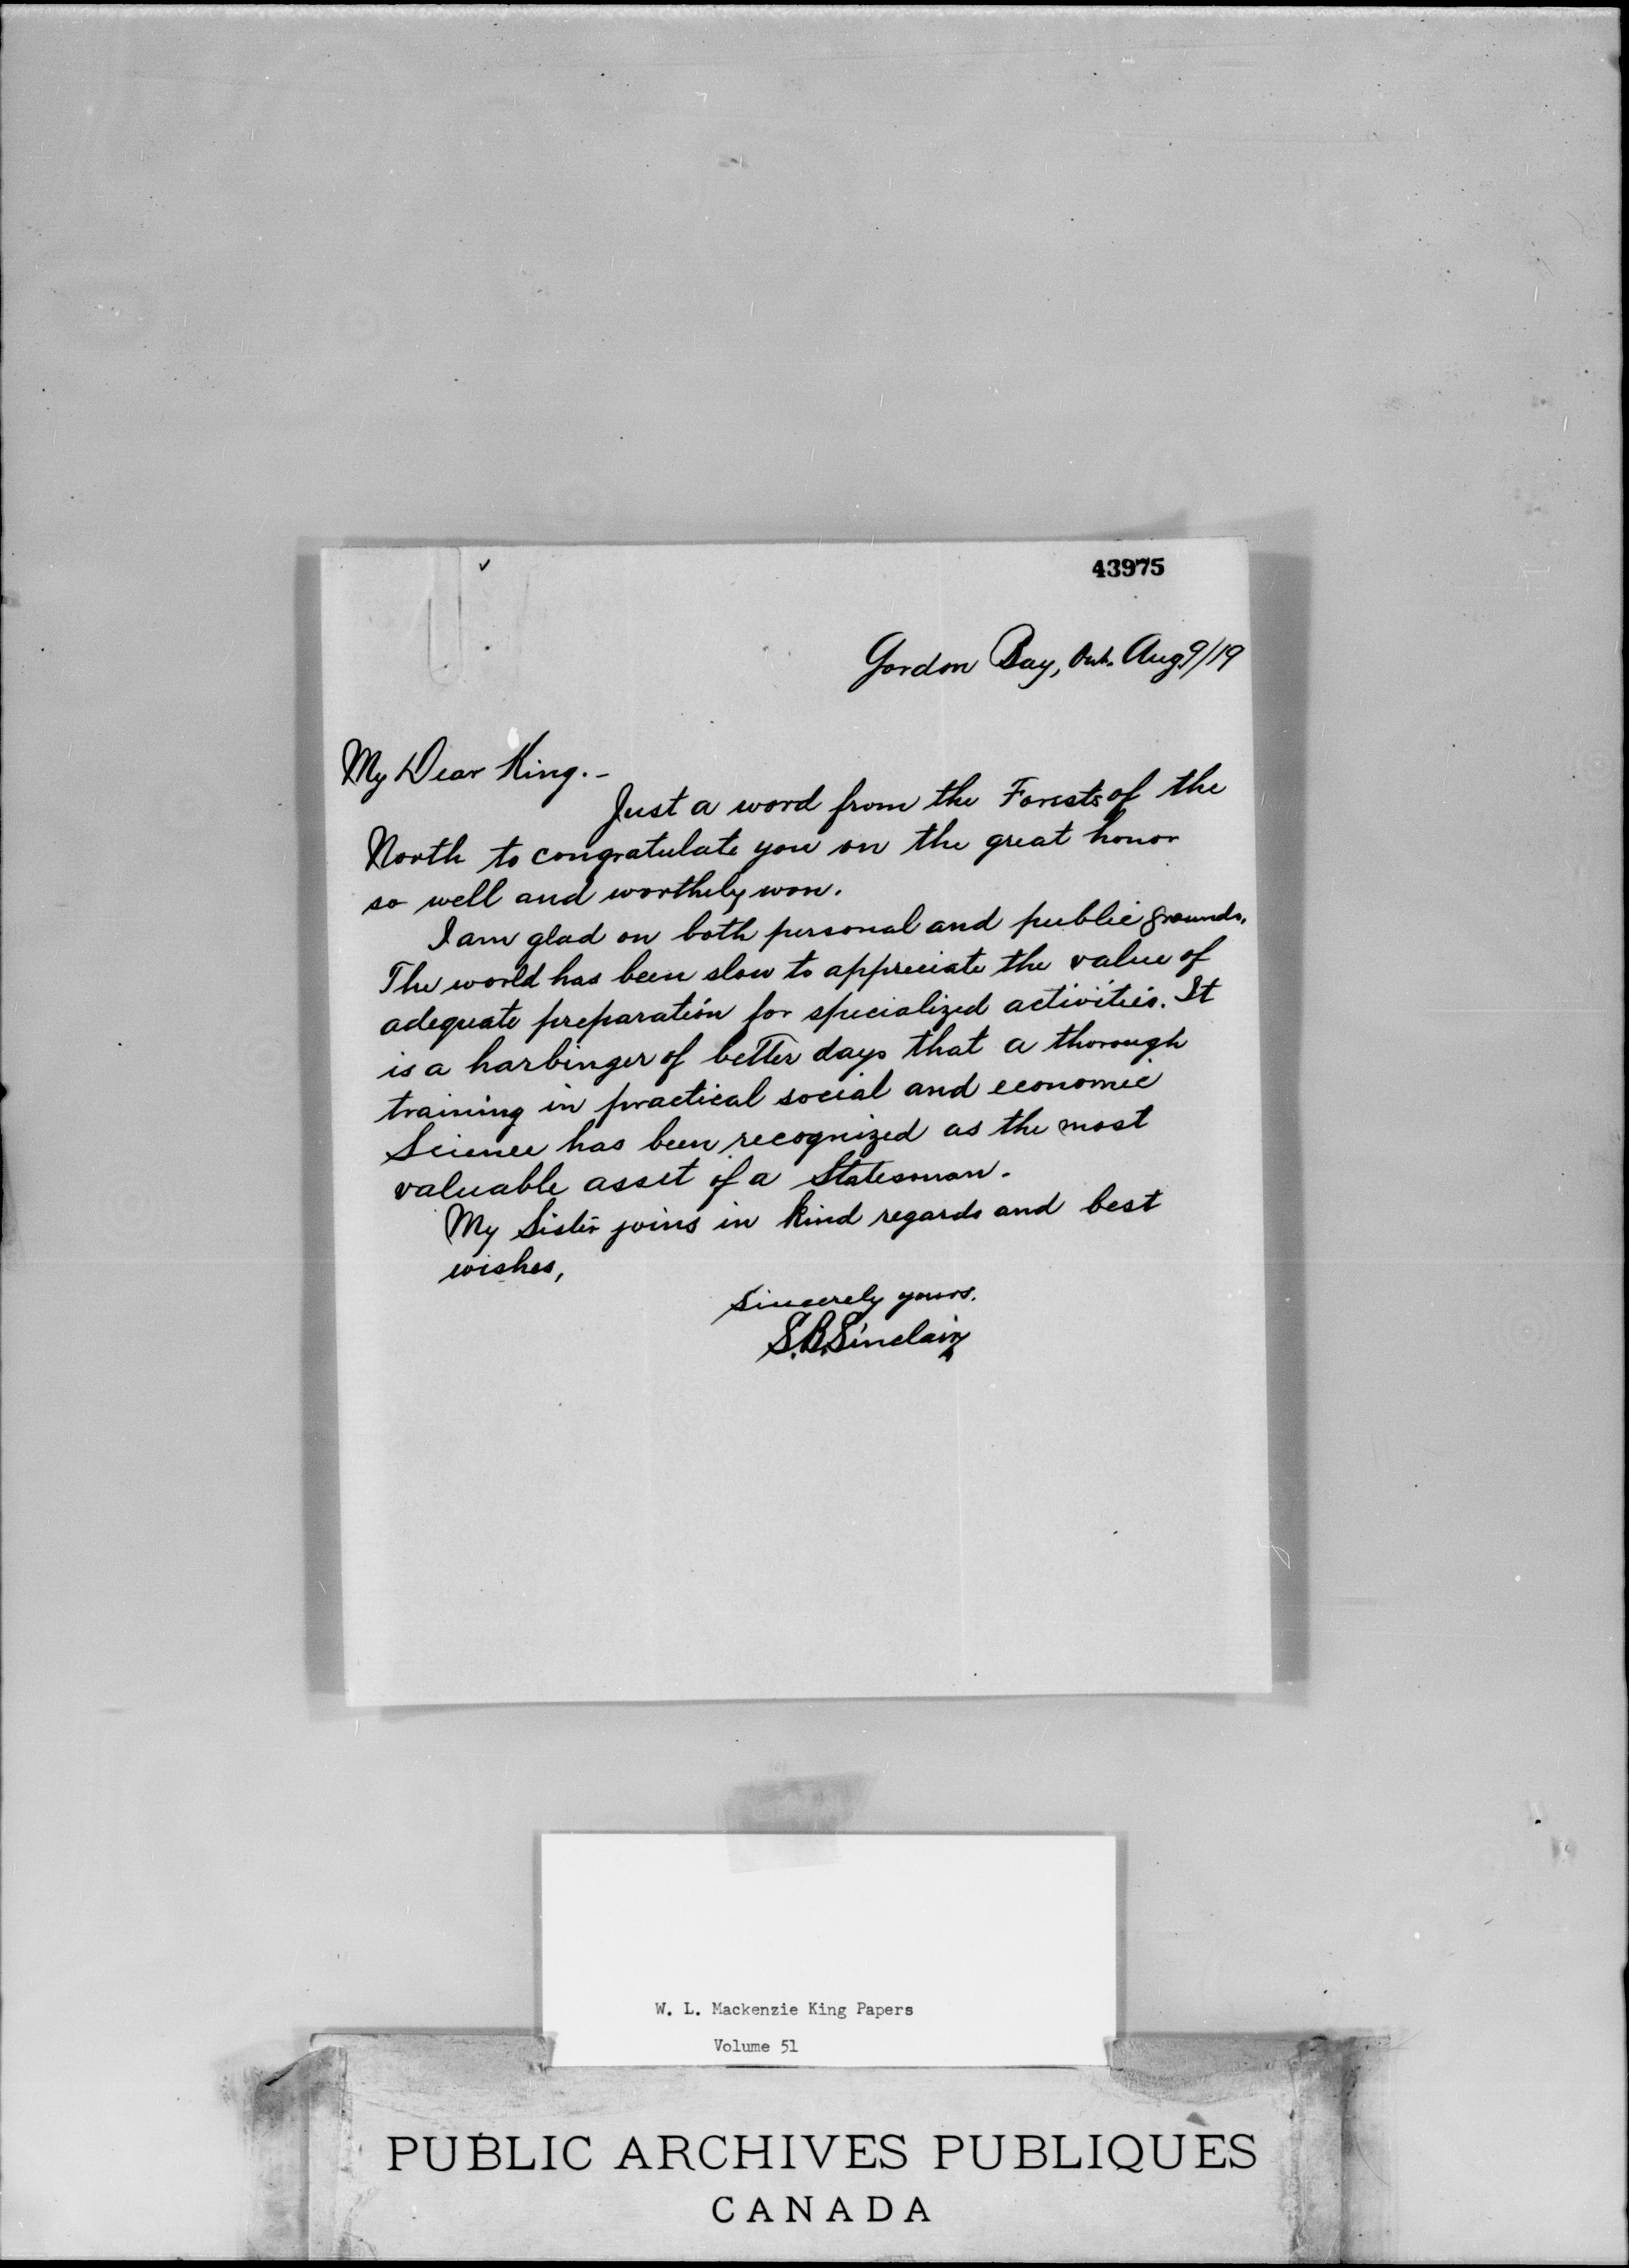 43975
Gordon Bay, Ont. Aug 9/19
My Dear King.-
Just a word from the Forests of the
North to congratulate you on the great honor
so well and worthily won.
I am glad on both personal and public grounds.
The world has been slow to appreciate the value of
adequate preparation for specialized activities. It
is a harbinger of better days that a thorough
training in practical social and economic
Science has been recognized as the most
valuable asset of a Statesman.
My Sister joins in kind regards and best
wishes,
Sincerely yours.
S.B.Sinclair
W. L. Mackenzie King Papers
Volume 51
PUBLIC ARCHIVES PUBLIQUES
CANADA